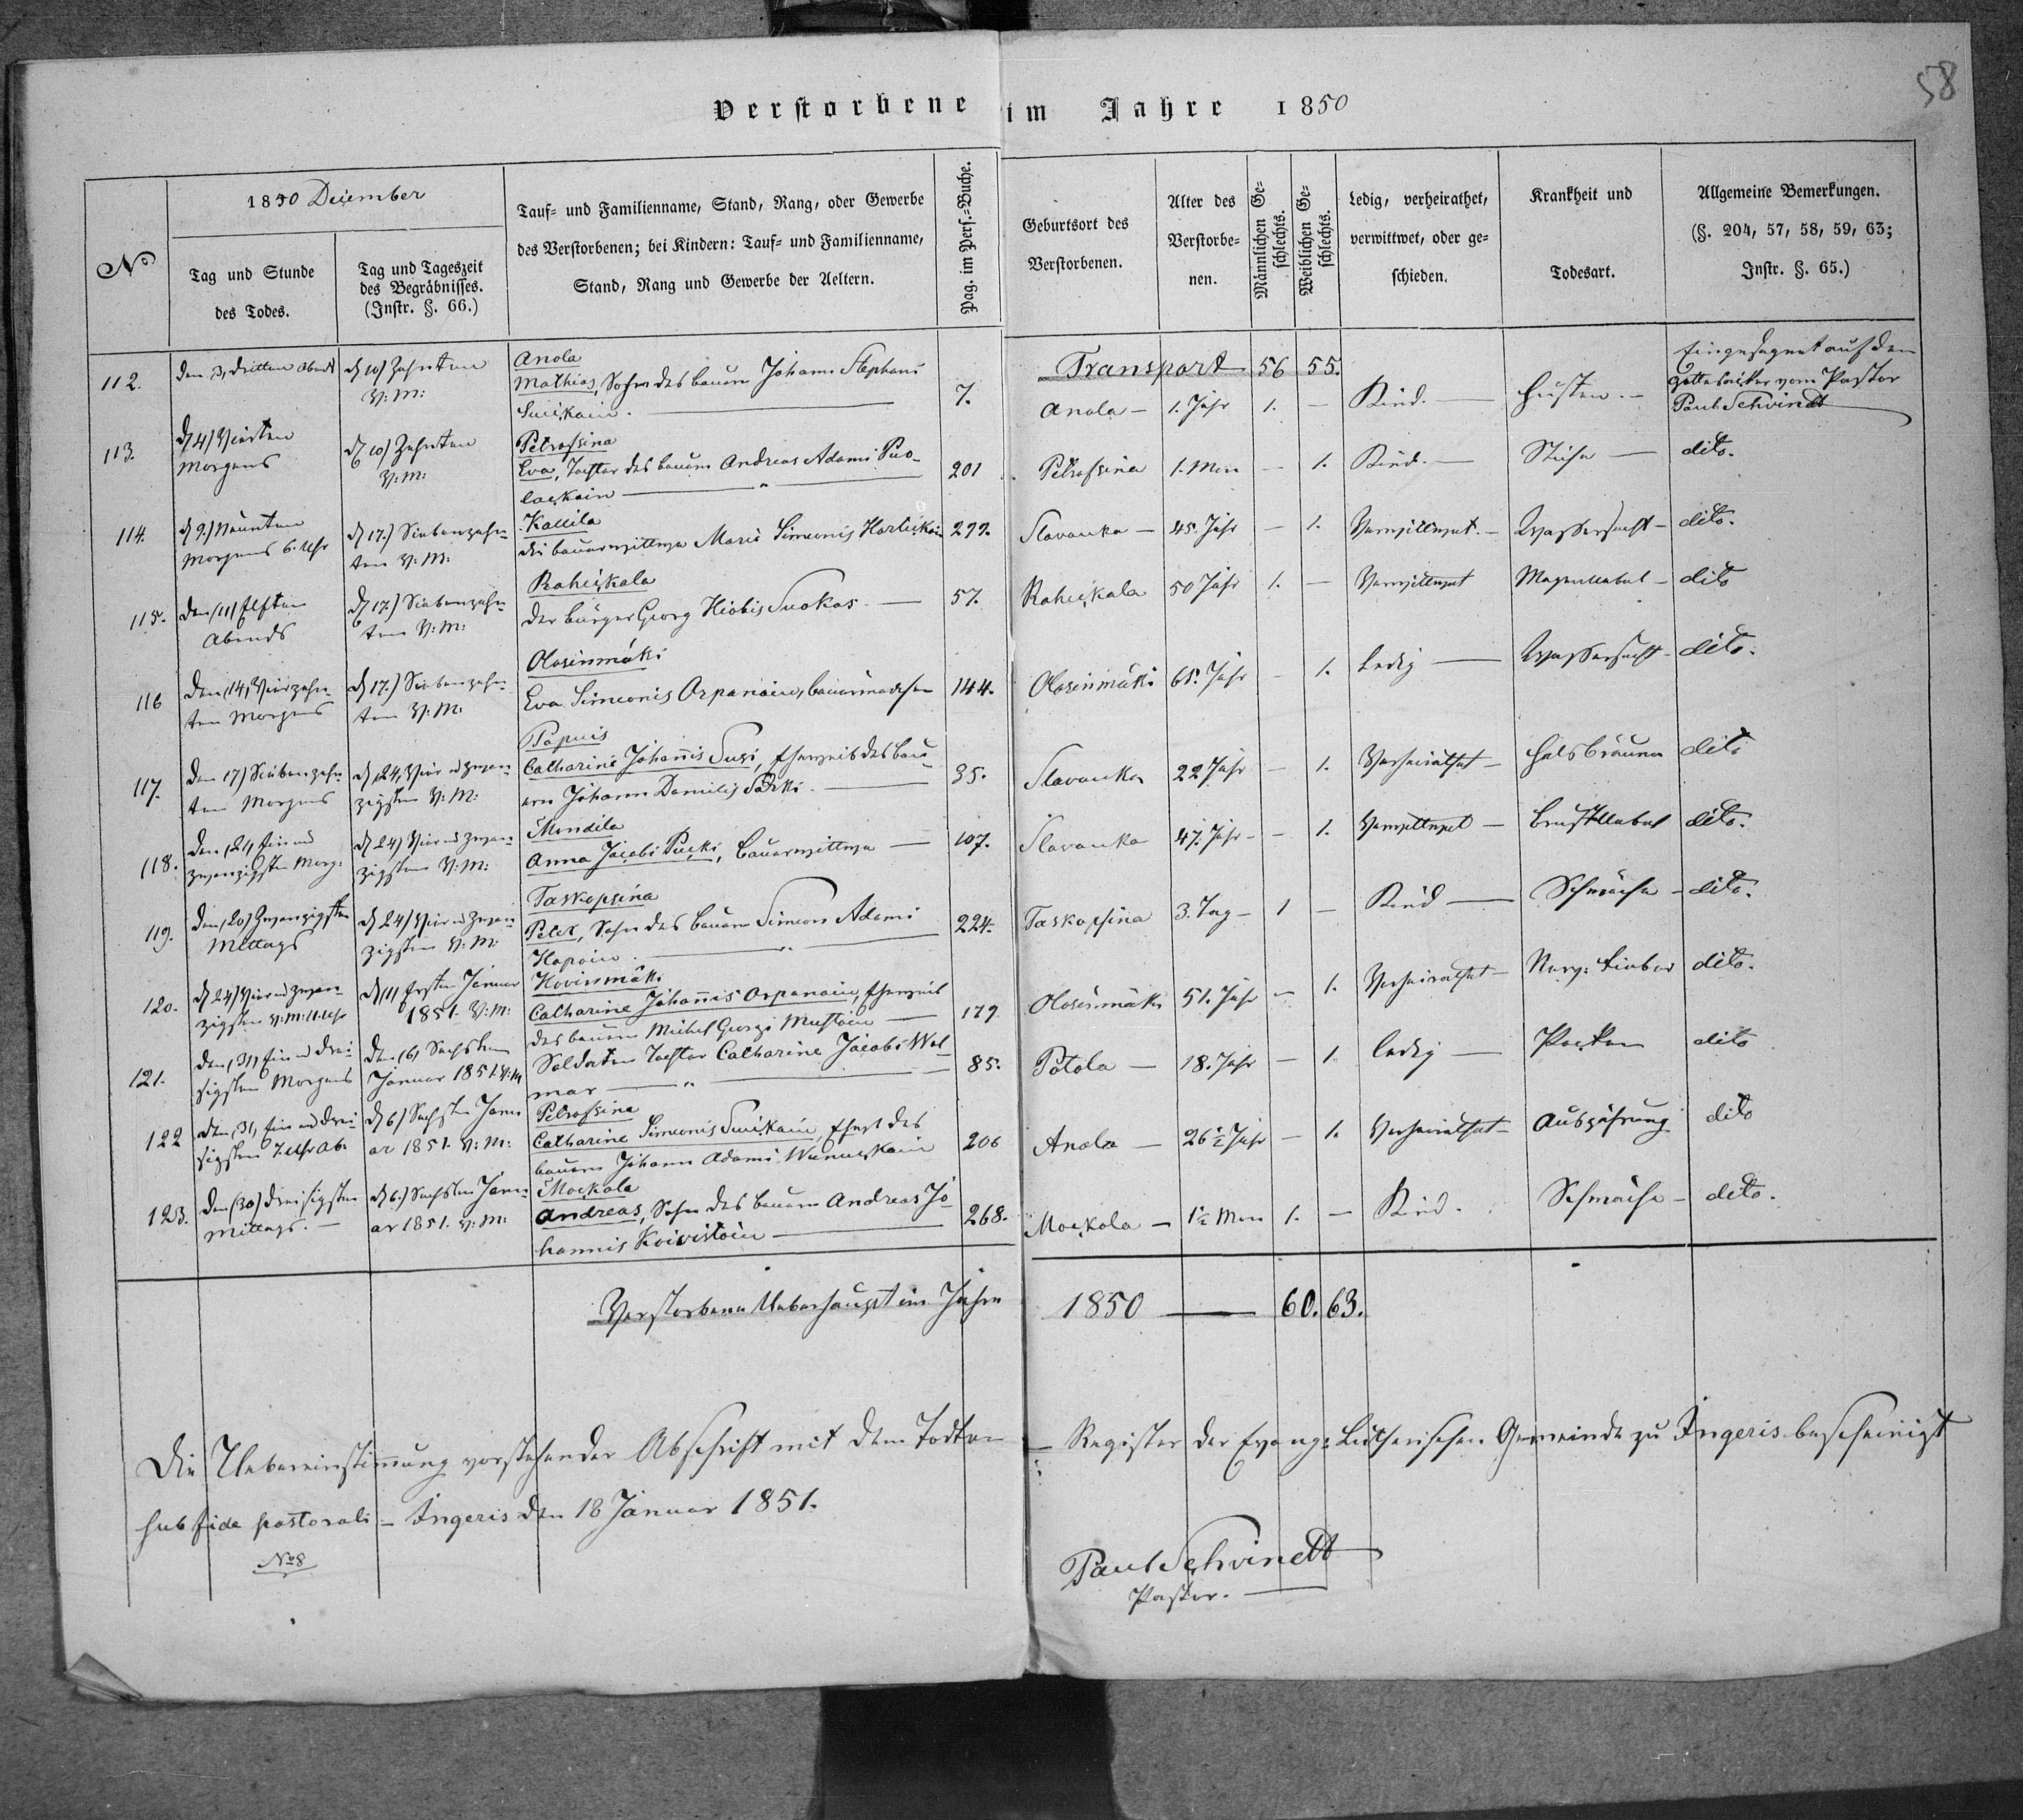 58
Verstorbene im Jahre 1850
No
1850 December
Tag und Stunde des Todes.
Tag und Tageszeit des Begräbnisses. (Instr. §. 66.)
Tauf- und Familienname, Stand, Rang, oder Gewerbe
des Verstorbenen; bei Kindern: Tauf- und Familienname,
Stand, Rang und Gewerbe der Aeltern.
Pag. im Pers.-Buche.
Geburtsort des Verstorbenen.
Alter des Verstorbenen.
Männlichen Geschlechts.
Weiblichen Geschlechts.
Ledig, verheirathet, verwittwet, oder geschieden.
Krankheit und Todesart.
Allgemeine Bemerkungen.
(§. 204, 57, 58, 59, 63;
Instr. §. 65.)
Transport 56 55.
112. Den 3, dritten Abends
d 10) Zehnten V: M:
Anola
Mathias, Sohn des Bauern Johann Stephani
7.
Anola — 1. Jahr 1. — Kind. — Husten. —
Eingesegnet auf dem
Gottesacker vom Pastor
Paul Schvindt
113. d 4) Vierten Morgens
d 10) Zehnten V: M:
Petrofsina
Eva, Tochter des Bauern Andreas Adami
201
Petrofsina 1. Mon — 1. Kind. — dito.
114. d 9.) Neunten Morgens 6. Uhr
d 17.) Siebenzehnten V: M:
Kallila
die Bauerwittwe Mariä Simeonis
Slavanka — 45. Jahr — 1. Verwittwet. — Wassersucht — dito.
115. den (11) Elften Abends
d 17.) Siebenzehnten V: M:
Rahiçkala
der Bürger Georg Hiobis Suokas. —
57.
Rahiçkala 50 Jahr 1. — Verwittwet dito
116 den (14, Vierzehnten Morgens
d 17.) Siebenzehnten V: M:
Olosinmäki
Eva Simeonis Orpanain,
144.
Olosinmäki 65. Jahr — 1. Ledig — Wassersucht — dito.
117. den 17) Siebenzehnten Morgens
d 24, Vier u zwanzigsten V: M:
Papuis
Catharine Johannis Susi, Eheweib des Bauern Johann Danielis
35.
Slavanka 22 Jahr — 1. Verheirathet — Halsbräune dito
118. den (21, Ein und zwanzigsten Morg:
d 24) Vier u zwanzigsten V: M:
Mondila
Anna Jacobi Puçki, Bauerwittwe —
107.
Slavanka 47. Jahr — — 1. Verwittwet — dito.
119. den (20) Zwanzigsten Mittags
d 24) Vier u zwanzigsten V: M:
Taskopsina
Peter, Sohn des Bauern Simeon Adami
Hapoin.
224.
Taskopsina 3. Tag — 1 — Kind — Schwäche — dito.
120. d 24) Vier u zwanzigsten V: M: 11. Uhr
d (1) Ersten Januar 1851. V: M:
Hovinmäki
Catharine Johannis Orpanain, Eheweib
des Bauern Michel Georgi Mustoin —
179
Olosinmäki 51. Jahr — 1. Verheirathet — Nerv: Fieber dito.
121. den (31) Ein u dreisigsten Morgens
den (6) Sechsten Januar 1851 V: M
Soldaten Tochter Catharine Jacobi Walmar —
85.
Potola — 18. Jahr — 1. Ledig — Pocken dito
122 den (31, Ein und dreisigsten 7. Uhr Ab.
d 6) Sechsten Januar 1851. V: M:
Petrofsina
Catharine Simeonis
Bauern Johann Adami
206
Anola — 26½ Jahr — 1. Verheirathet — Auszehrung dito
123. den (30) Dreisigsten Mittags. —
d 6.) Sechsten Januar 1851. V: M:
Moçkola
Andreas, Sohn des Bauern Andreas Johannis Koivistoin —
268.
Moçkola — 1½ Mon 1. — Kind. Schwäche — dito.
Verstorbene Ueberhaupt im Jahre 1850 — 60. 63.
Die Uebereinstimmung vorstehender Abschrift mit dem Todten-Register der Evang: Lutherischen Gemeinde zu Ingeris bescheinigt
sub fide pastorali — Ingeris den 18 Januar 1851.
No 8
Paul Schvindt
Pastor.